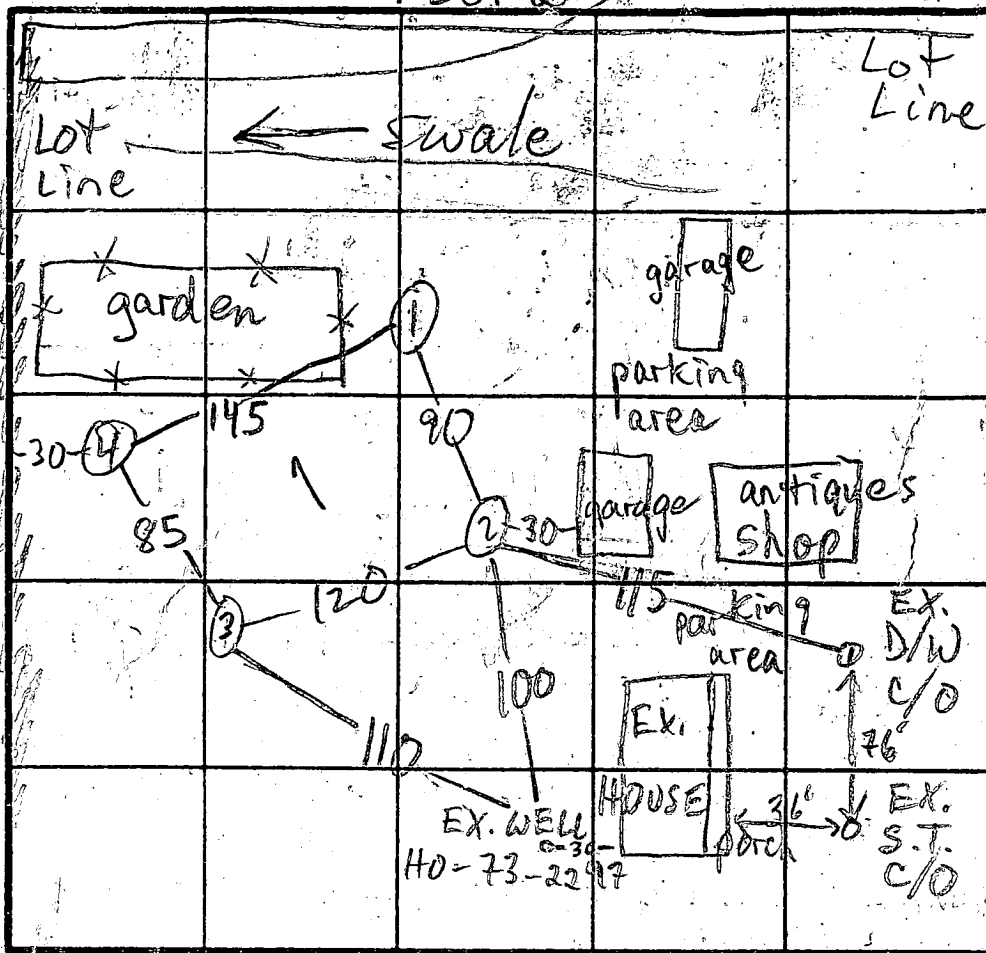 Lot
Line
Lot
Line
← Swale
garden
1
garage
parking
area
145
90
-30-
4
garage
antiques
Shop
2
-30-
85
120
115
parking
area
3
1
EX.
D/W
C/O
100
76'
Ex.
HOUSE
110
EX. WELL
-30-
HO-73-2297
porch
36'
EX.
S.T.
C/O